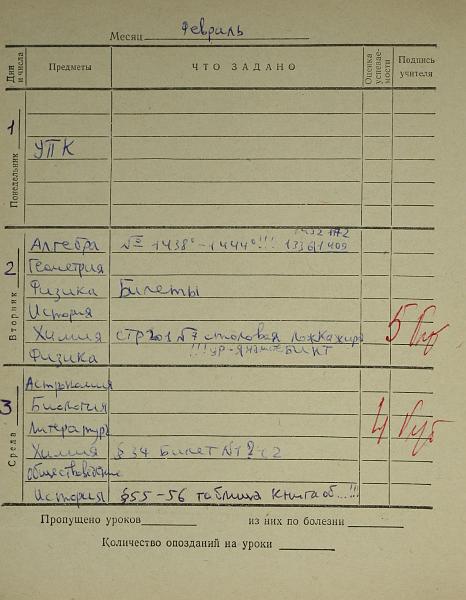 Месяц Февраль
Дни и числа Предметы ЧТО ЗАДАНО Оценка успеваемости Подпись учителя
Понедельник 1
УПК
Вторник 2
Алгебра № 1438° - 1444°!!! 1336 1409
Геометрия
Физика Билеты
История
Химия стр 201 №7 столовая ложка жира 5
Физика !!! БИНТ
Среда 3
Астрономия
Биология 4
Литература
Химия § 34 Билет №1 2
Обществоведение
История § 55-56 таблица книга об...!!!
Пропущено уроков из них по болезни
Количество опозданий на уроки